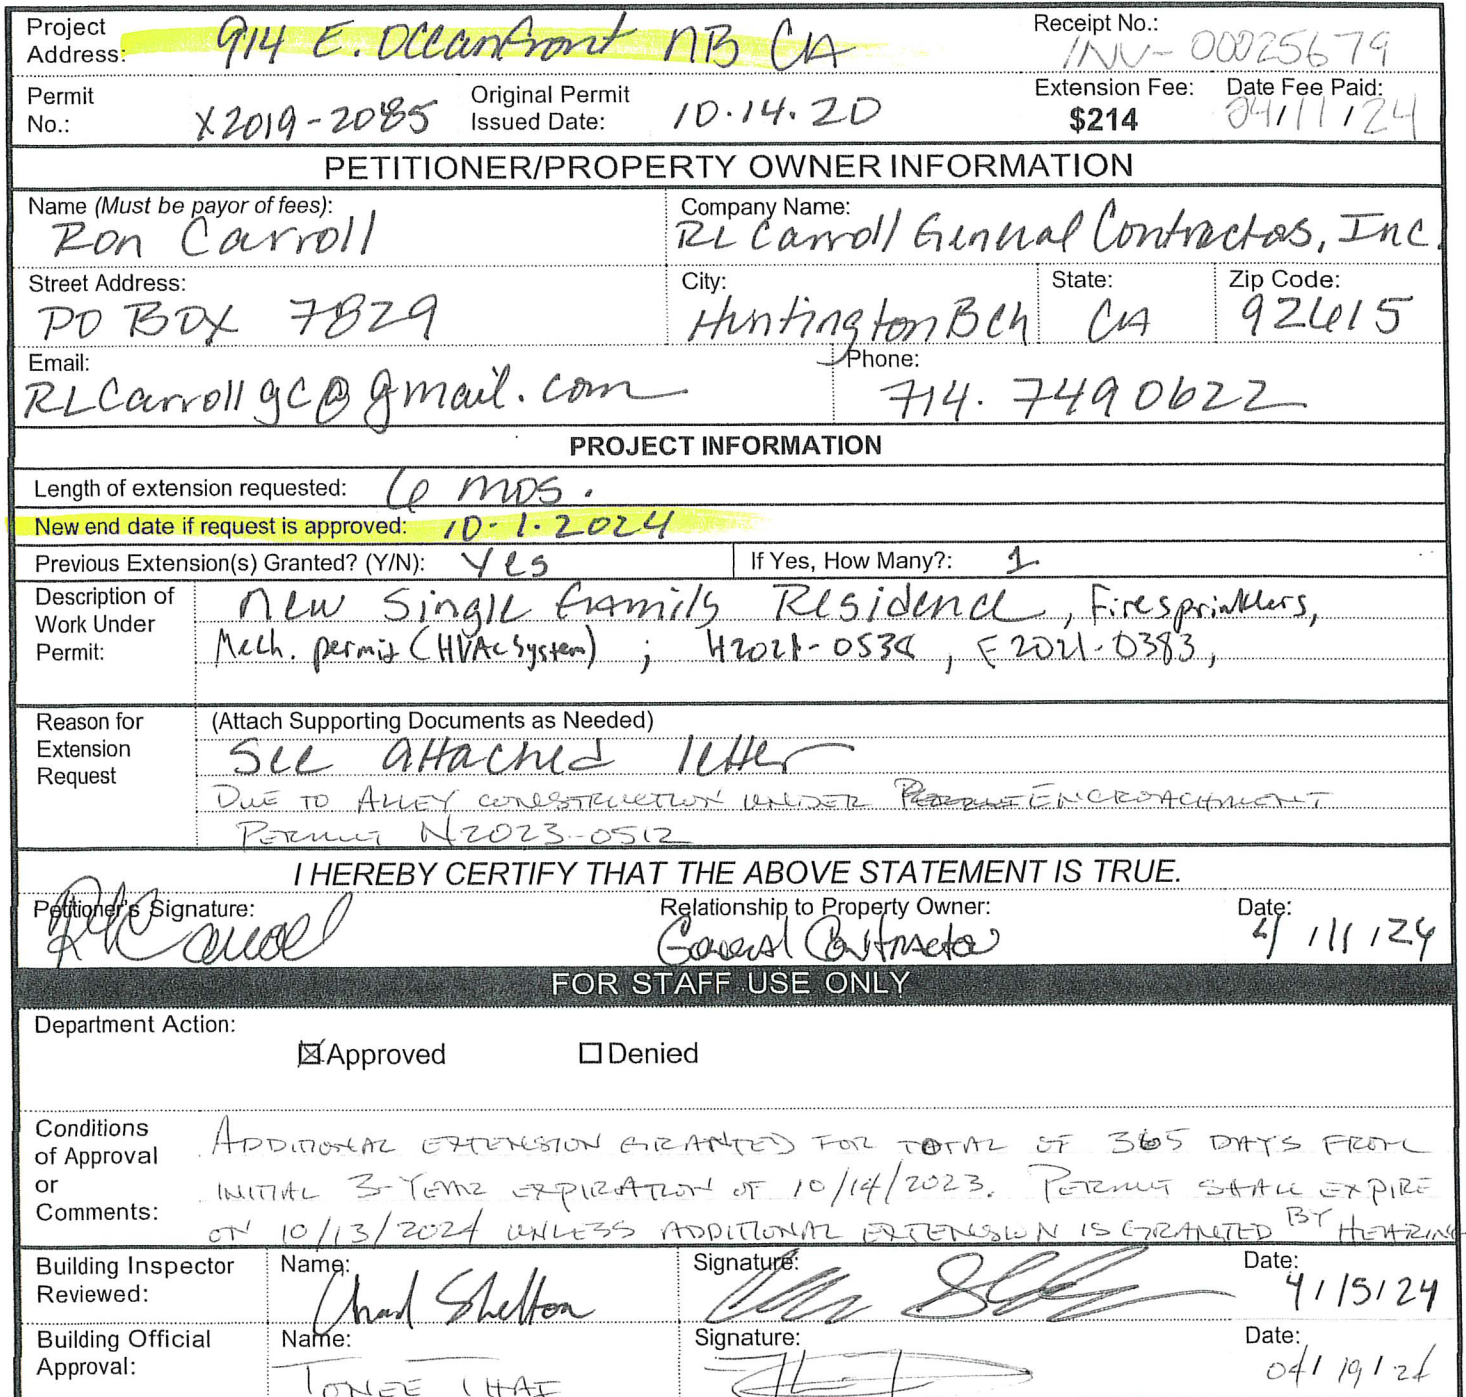 Project Address: 914 E. Oceanfront NB CA Receipt No.: INV-00025679
Permit No.: X2019-2085 Original Permit Issued Date: 10.14.20 Extension Fee: $214 Date Fee Paid: 04/11/24
PETITIONER/PROPERTY OWNER INFORMATION
Name (Must be payor of fees): Company Name:
Ron Carroll RL Carroll General Contractors, Inc.
Street Address: City: State: Zip Code:
PO BOX 7829 Huntington Bch CA 92615
Email: Phone:
RLCarrollgc@gmail.com 714.7490622
PROJECT INFORMATION
Length of extension requested: 6 mos.
New end date if request is approved: 10.1.2024
Previous Extension(s) Granted? (Y/N): Yes If Yes, How Many?: 1
Description of Work Under Permit: New Single Family Residence, Firesprinklers,
Mech. permit (HVAC System); E2021-0383,
Reason for Extension Request (Attach Supporting Documents as Needed)
See attached letter
DUE TO ALLEY CONSTRUCTION UNDER ENCROACHMENT
PERMIT N2023-0512
I HEREBY CERTIFY THAT THE ABOVE STATEMENT IS TRUE.
Petitioner's Signature: Relationship to Property Owner: Date:
RL Carroll General Contractor 4/11/24
FOR STAFF USE ONLY
Department Action:
☒ Approved ☐ Denied
Conditions of Approval or Comments: ADDITIONAL EXTENSION GRANTED FOR TOTAL OF 365 DAYS FROM
INITIAL 3-YEAR EXPIRATION OF 10/14/2023. PERMIT SHALL EXPIRE
ON 10/13/2024 UNLESS ADDITIONAL EXTENSION IS GRANTED BY HEARING
Building Inspector Reviewed: Name: Chad Shelton Signature: Date: 4/15/24
Building Official Approval: Name: TONEE THAI Signature: Date: 04/19/24